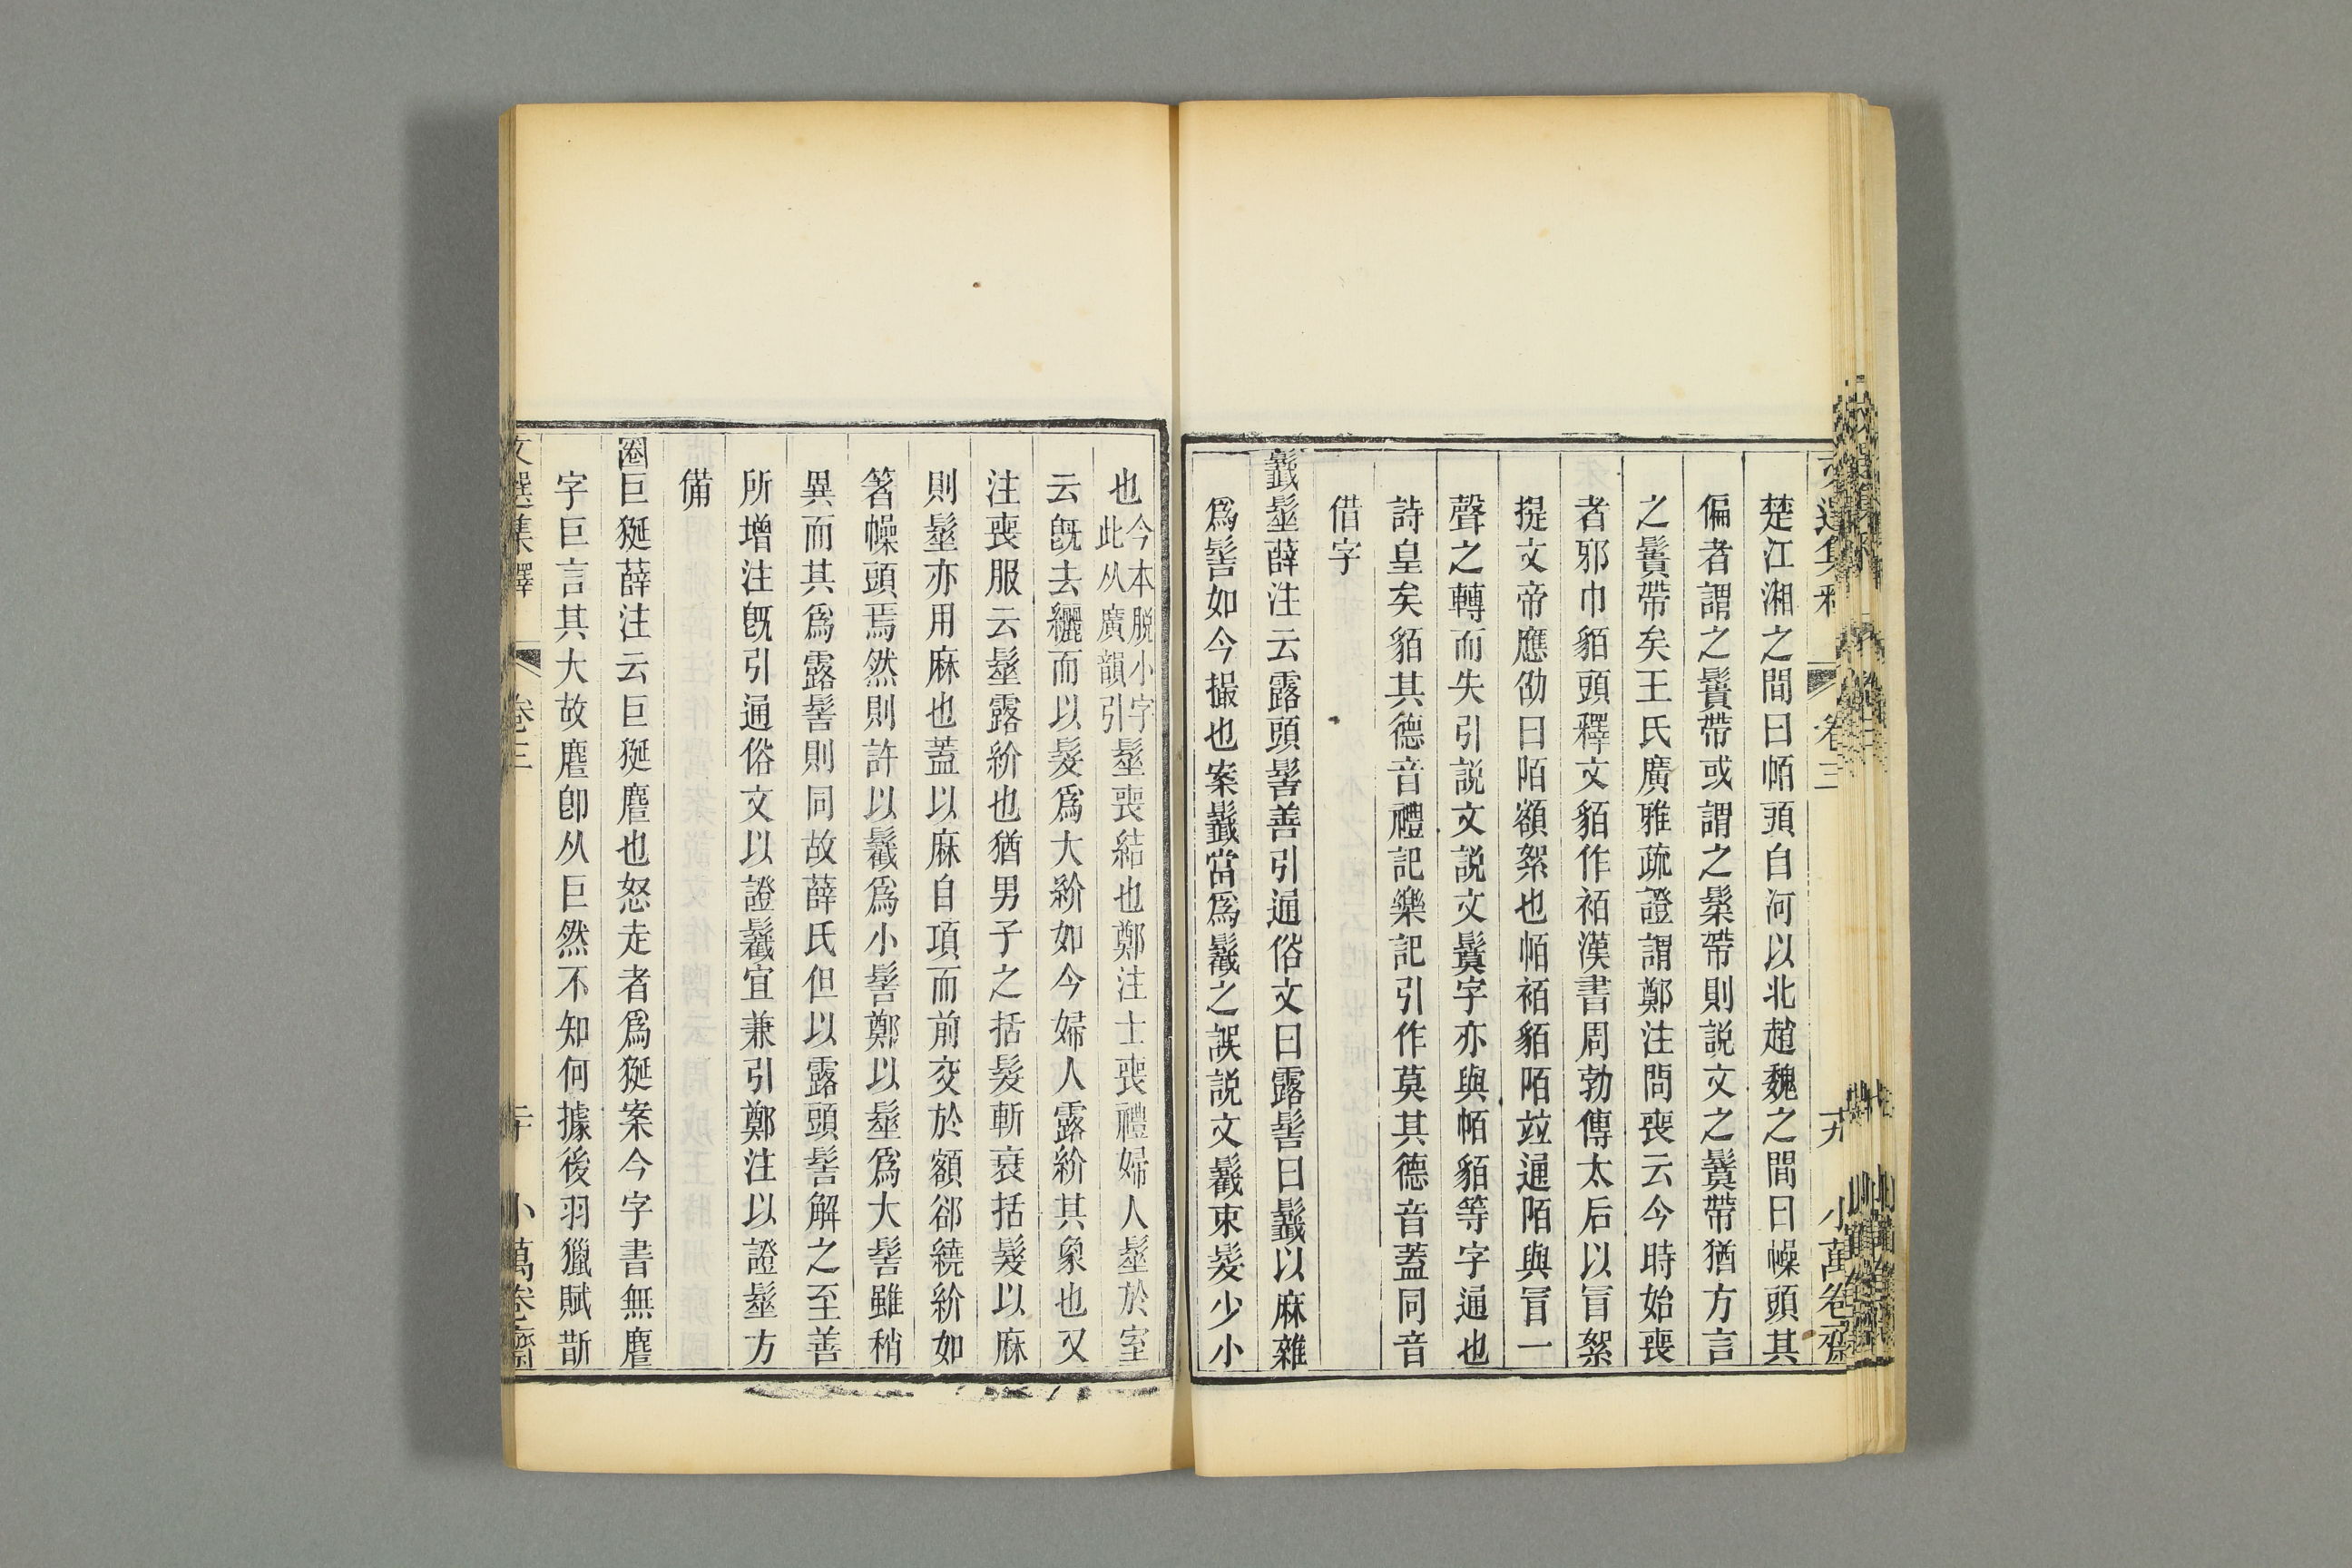 文選集釋 卷三 十九 小萬卷齋
楚江湘之間曰帞頭自河以北趙魏之間曰幧頭其
偏者謂之鬢帶或謂之髤帶則説文之鬕帶猶方言
之鬢帶矣王氏廣雅疏證謂鄭注問喪云今時始喪
者邪巾貊頭釋文貊作袹漢書周勃傳太后以冒絮
提文帝應劭曰陌額絮也帞袹貊陌竝通陌與冒一
聲之轉而失引説文説文鬕字亦與帞貊等字通也
詩皇矣貊其德音禮記樂記引作莫其德音蓋同音
借字
髽薛注云露頭髻善引通俗文曰露髻曰以麻雜
爲髻如今撮也案當爲之誤説文束髮少小
也今本脱小字此从廣韻引髽喪結也鄭注士喪禮婦人髽於室
云旣去纚而以髮爲大紒如今婦人露紒其象也又
注喪服云髽露紒也猶男子之括髮斬衰括髮以麻
則髽亦用麻也蓋以麻自項而前交於額卻繞紒如
箸幧頭焉然則許以爲小髻鄭以髽爲大髻雖稍
異而其爲露髻則同故薛氏但以露頭髻解之至善
所增注旣引通俗文以證宜兼引鄭注以證髽方
備
圈巨狿薛注云巨狿麆也怒走者爲狿案今字書無麆
字巨言其大故麆卽从巨然不知何據後羽獵賦斮
文選集釋 卷三 二十 小萬卷齋